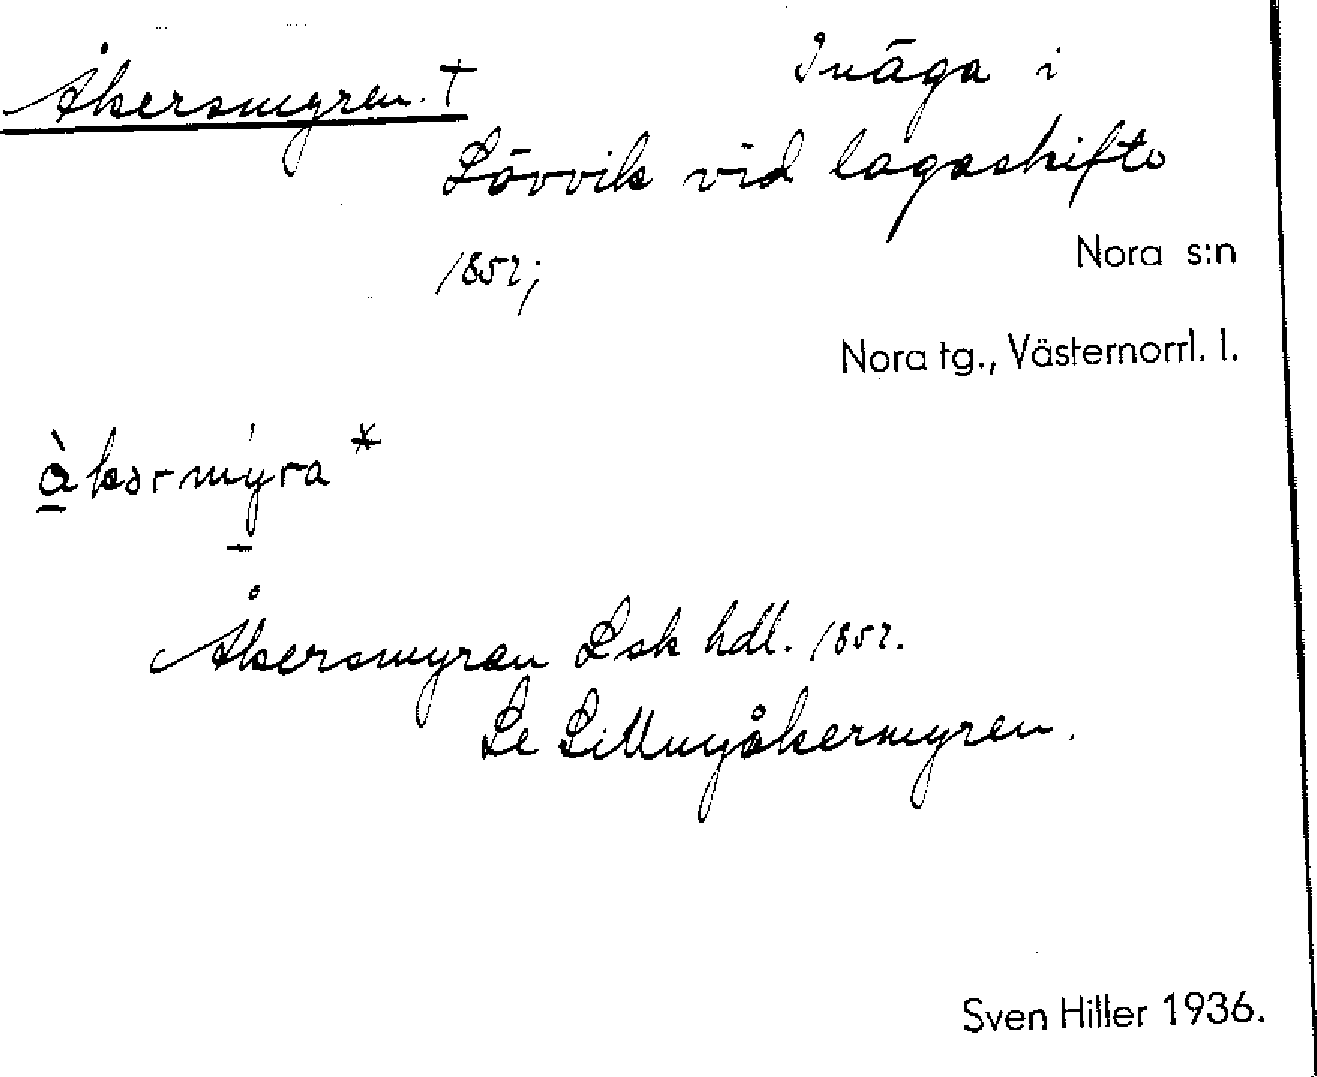 Åkersmyren. † Inäga i
Lövvik vid lagaskifte
1852;
Nora s:n
Nora tg., Västernorrl. l.
å̀kərmy̍ra *
Åkersmyran Lsk hdl. 1852.
Se Lillnyåkermyren.
Sven Hiller 1936.